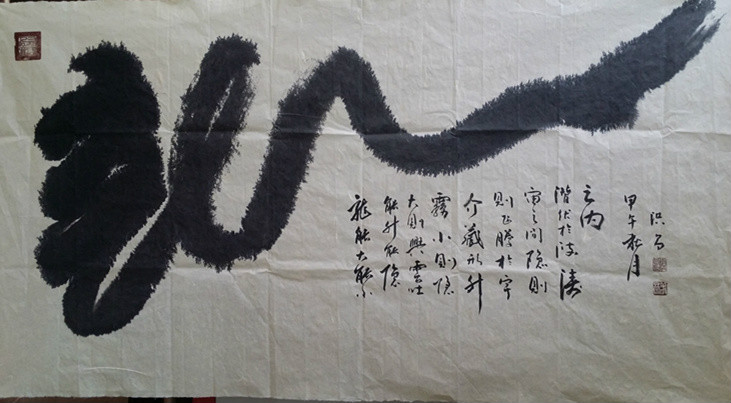 龍
龍能大能小
能升能隐
大則興雲吐
霧小則隐
介藏形升
則飞腾於宇
宙之间隐則
潛伏於波涛
之内
甲午秋月